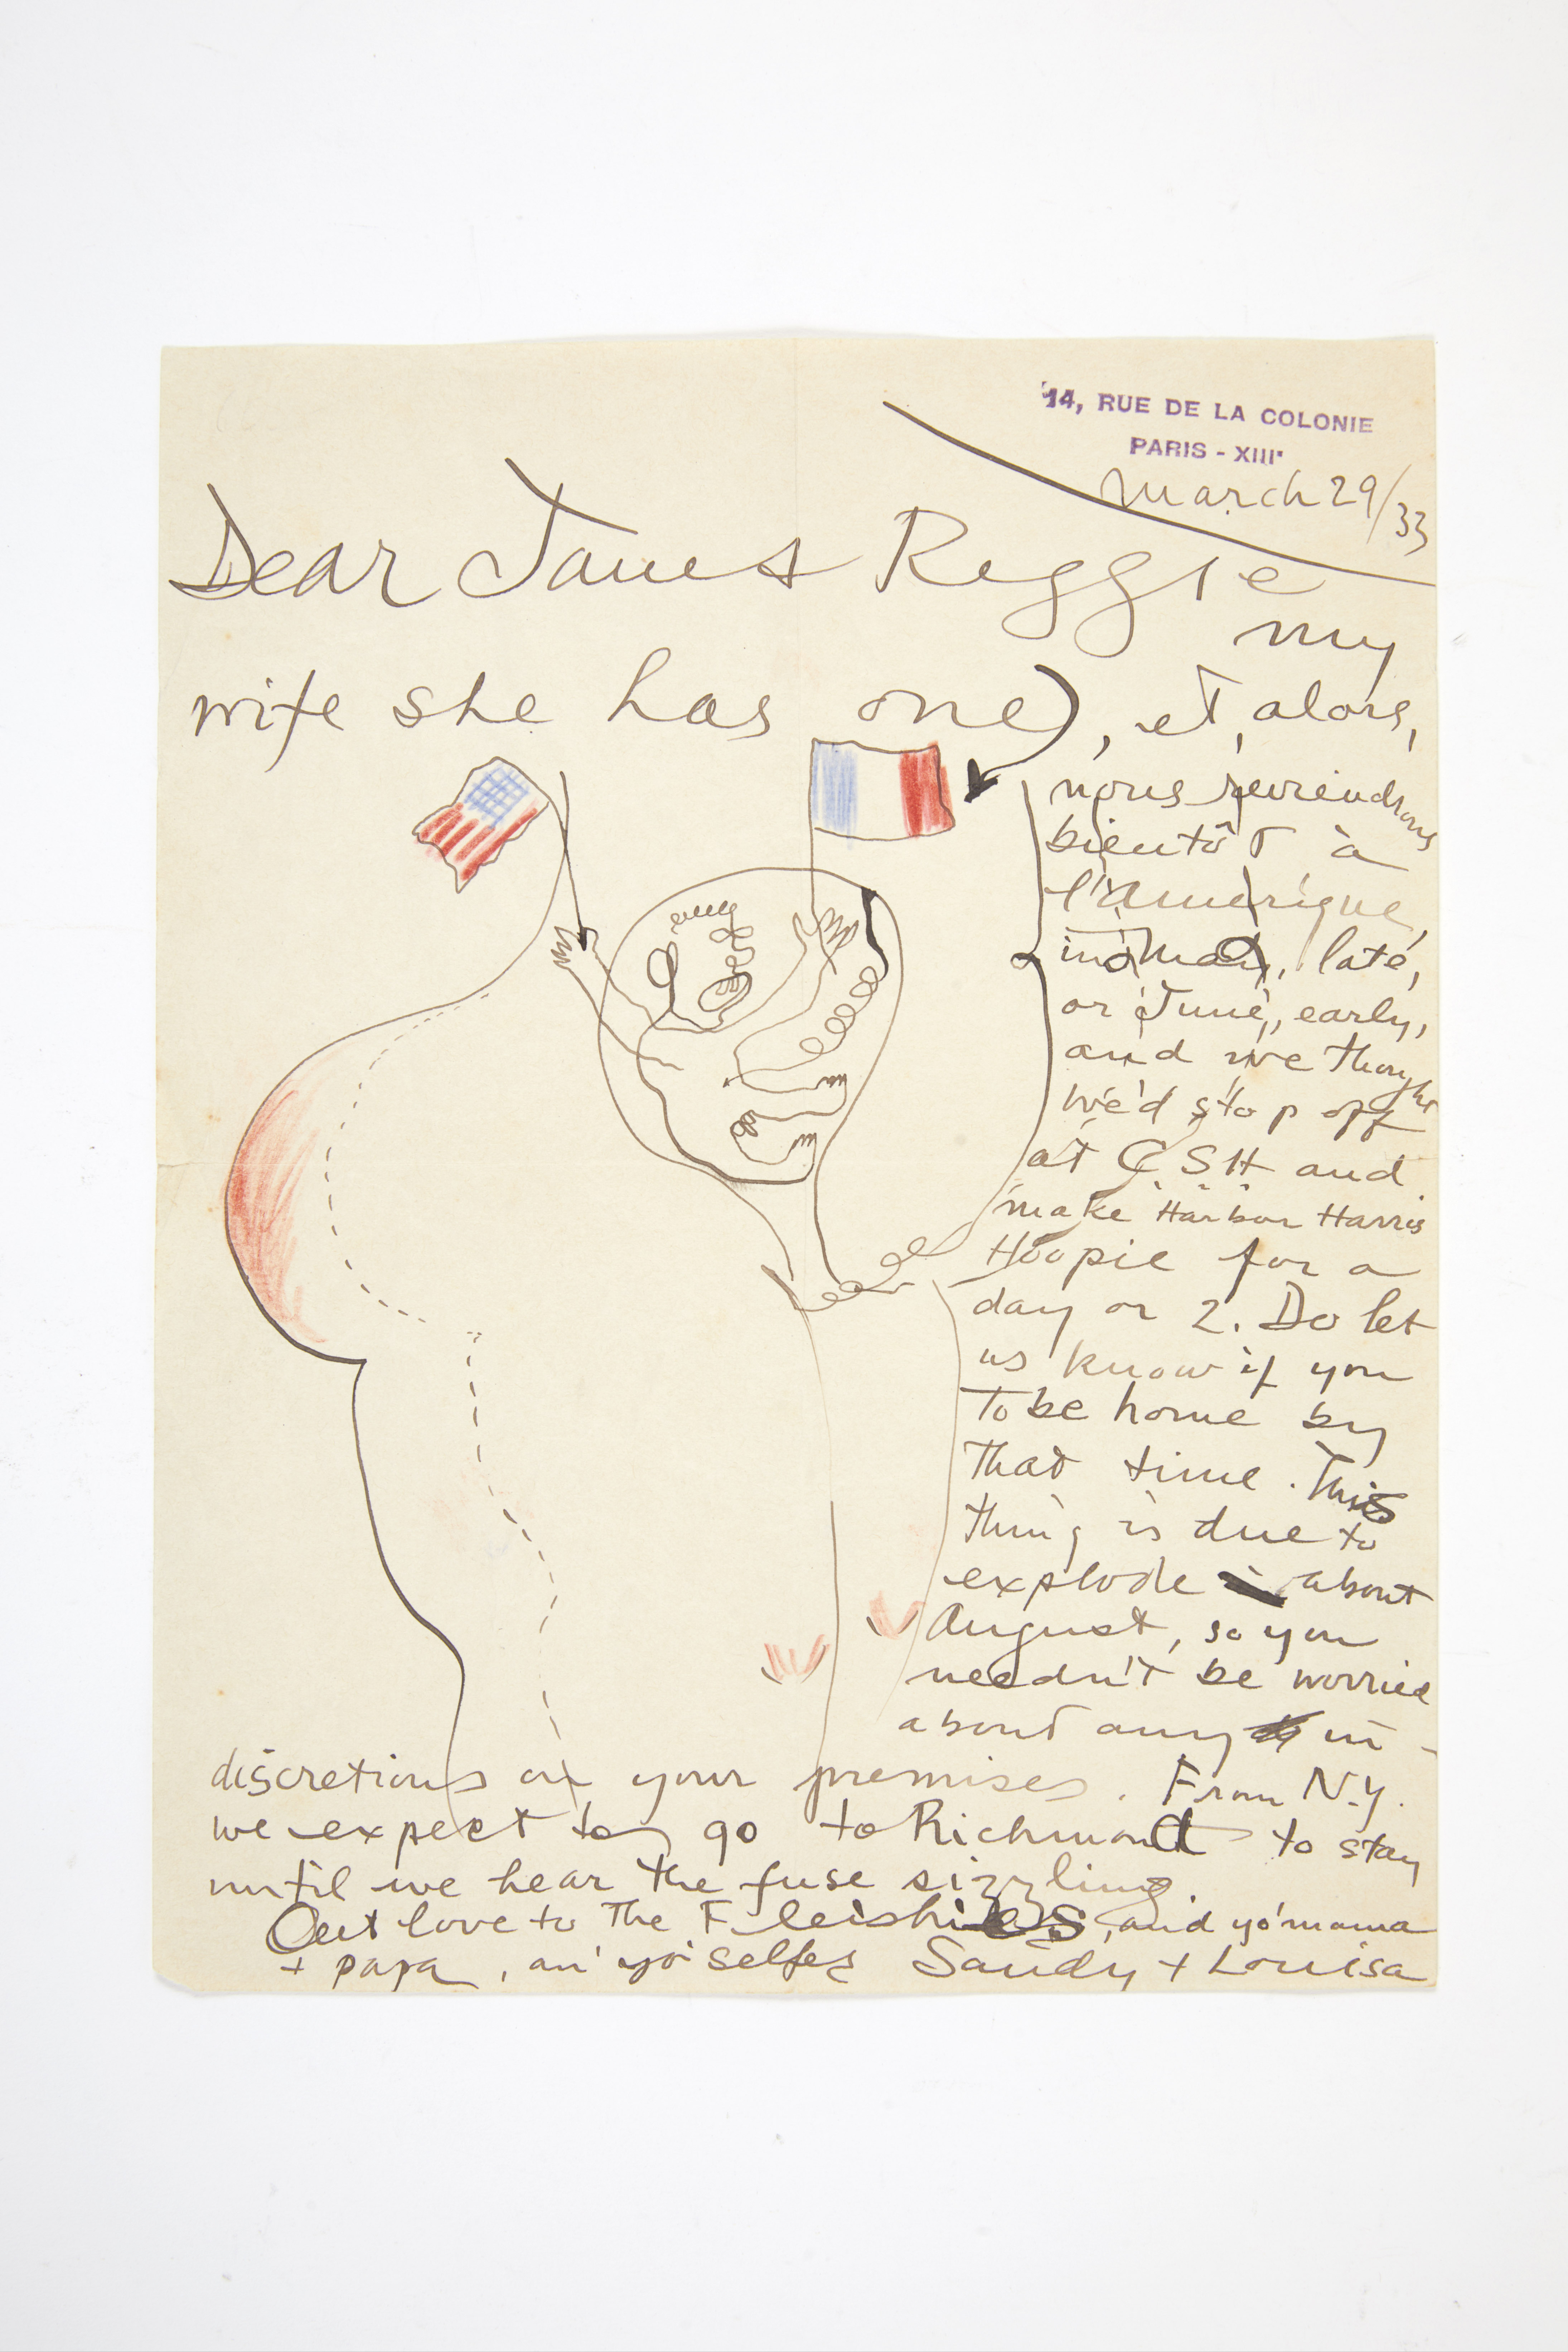 14, RUE DE LA COLONIE
PARIS - XIIIe
March 29/33
Dear Janes Reggie
my
wife she has one, et, alors,
nous reviendrons
bientôt à
l'amérique,
in May, late,
or June, early,
and we thought
we'd stop off
at C.S.H and
make Harbor Harris
Hoopie for a
day or 2. Do let
us know if you
to be home by
that time. This
thing is due to
explode about
August, so you
needn't be worried
about any in-
discretions on your premises. From N.Y.
we expect to go to Richmond to stay
until we hear the fuse sizzling.
Out love to the Fleishies, and yo' mama
+ papa, an' yo' selfes Sandy + Louisa